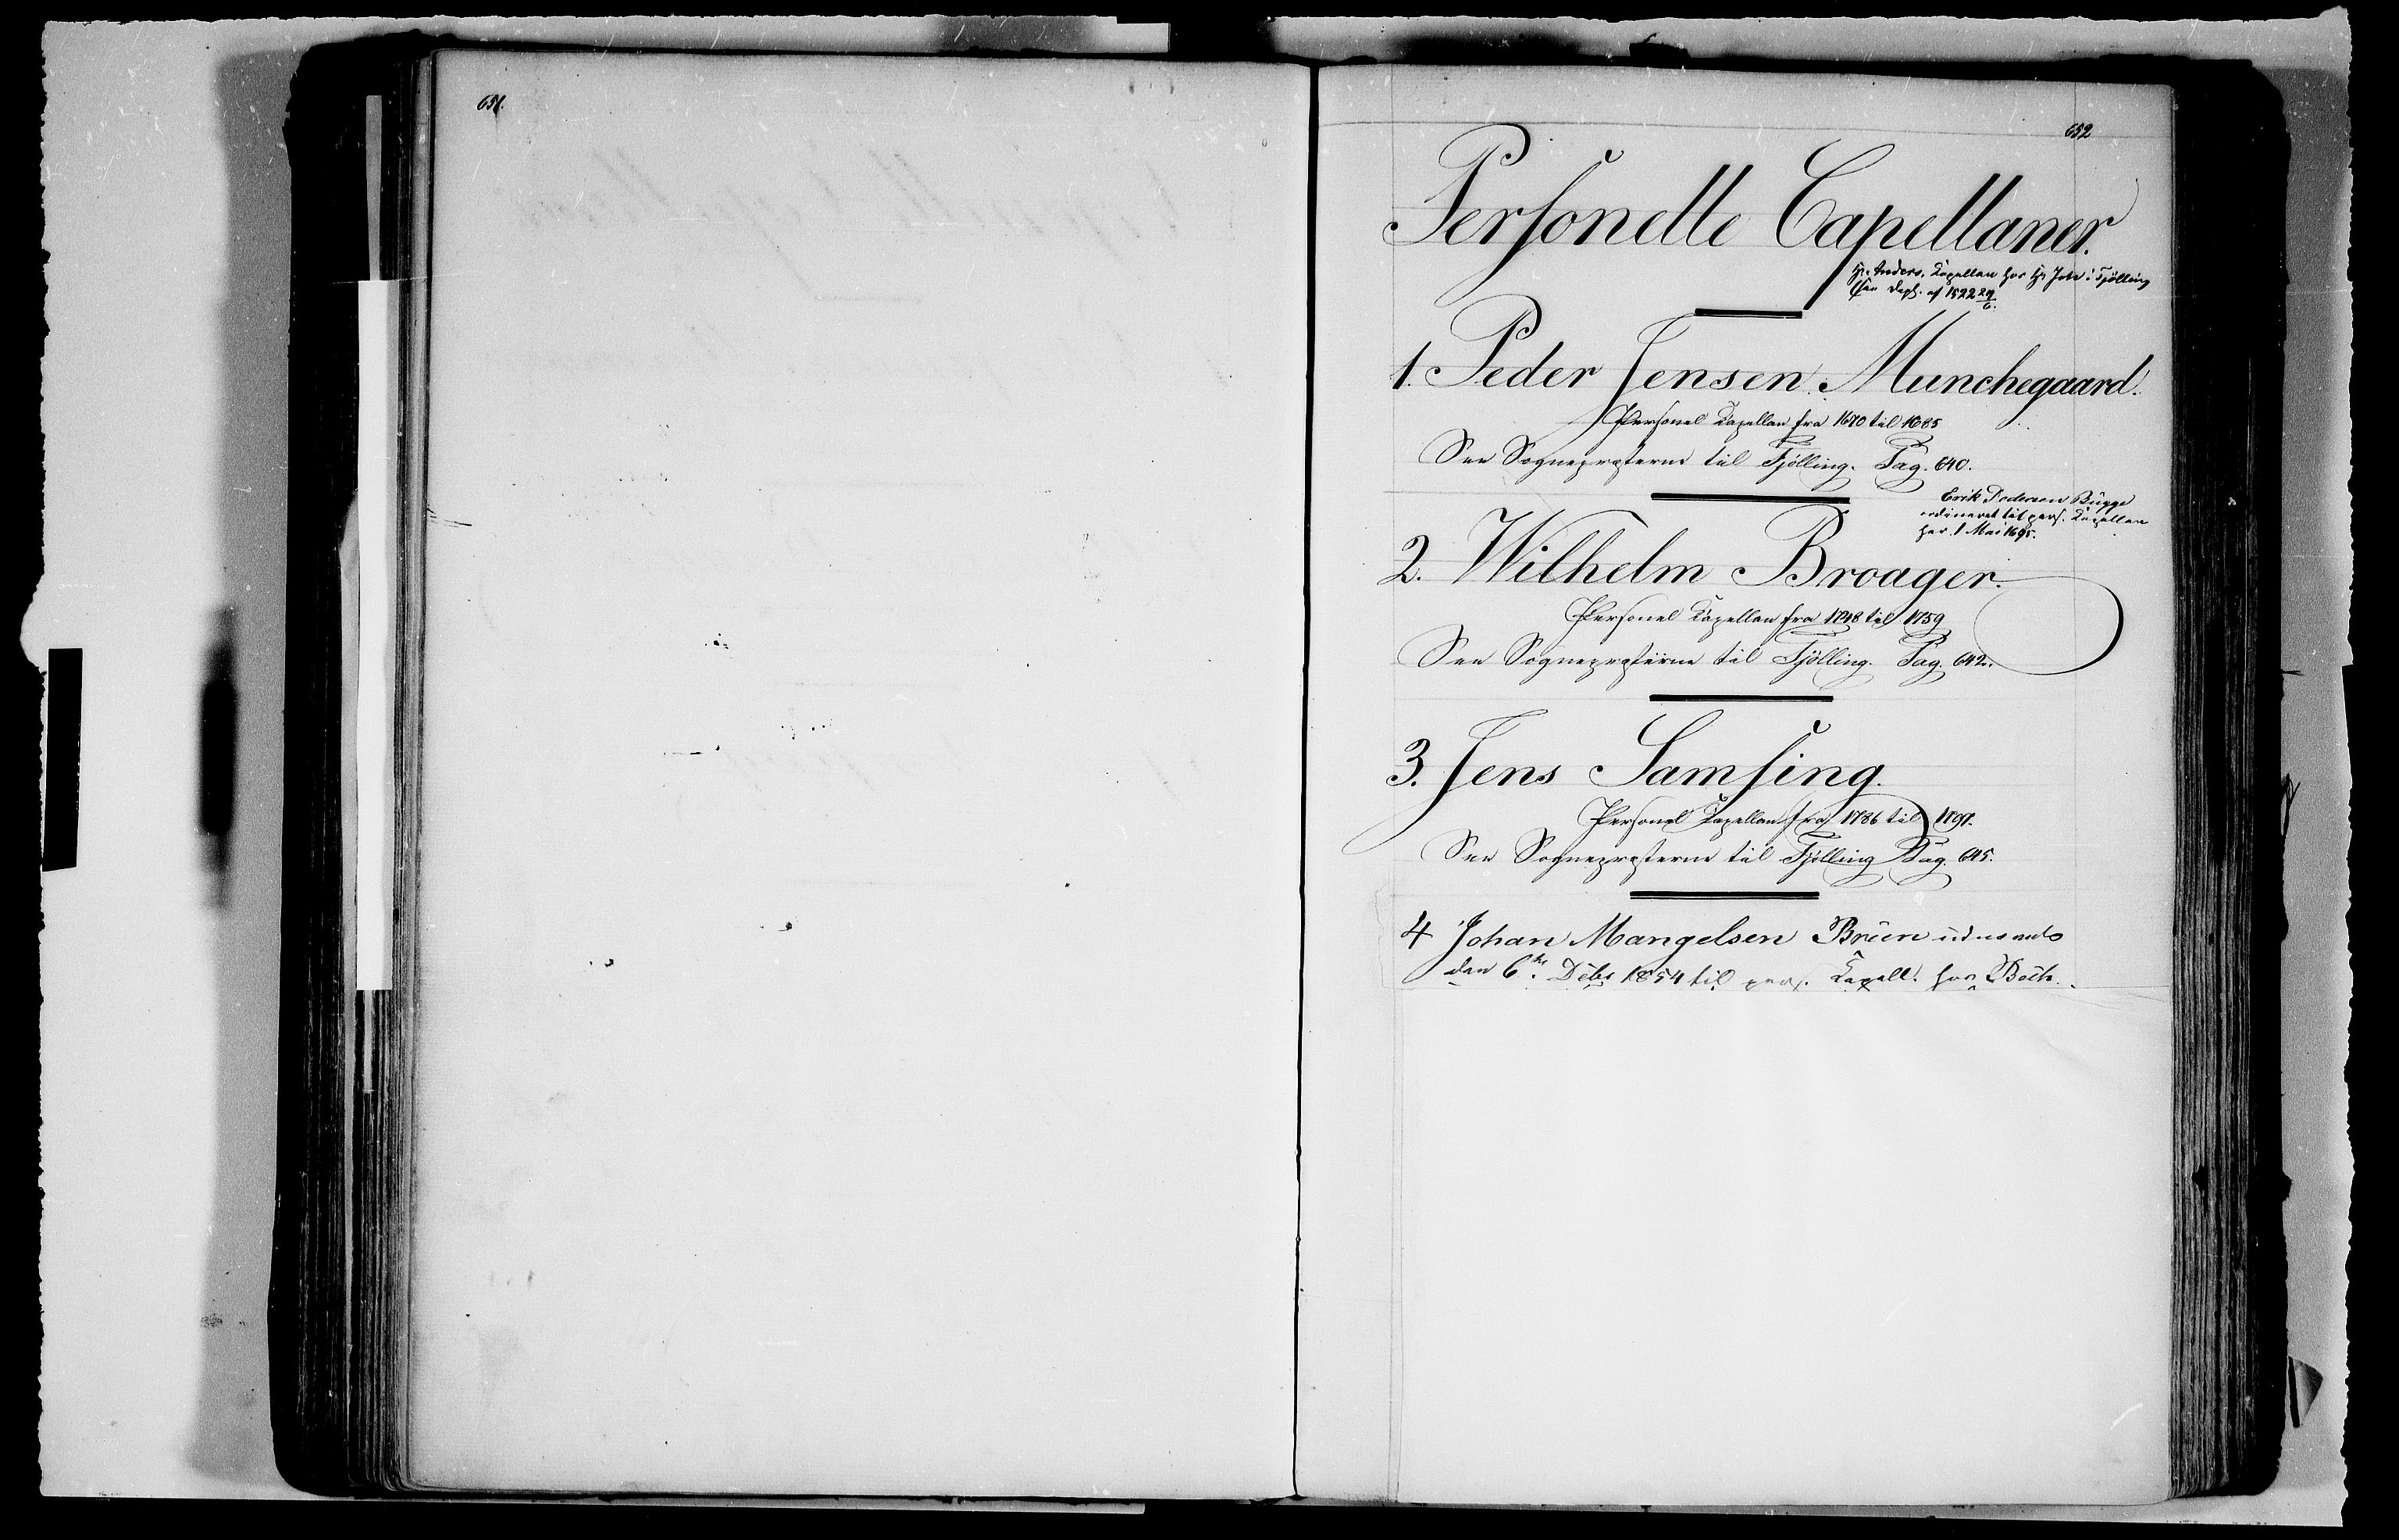 651.
652
Personelle Capellaner.
Hr. Anders, Kapellan hos Hr. i Tjölling
af 1522 29/6.
1. Peder Jensen Munchegaard.
Personel Kapellan fra 1670 til 1685
See Sognepresterne til Tjölling. Pag. 640.
Erik Pedersen Bugge
ordineret til pers. Kapellan
her 1 Mai 1695.
2. Wilhelm Broager.
Personel Kapellan fra 1748 til 1759
See Sognepresterne til Tjölling. Pag. 642.
3. Jens Samsing.
Personel Kapellan fra 1786 til 1797.
See Sognepresterne til Tjölling Pag. 645.
4 Johan Mangelsen Brun udnævnts
den 6te Debr 1854 til pers. Kapell. hos